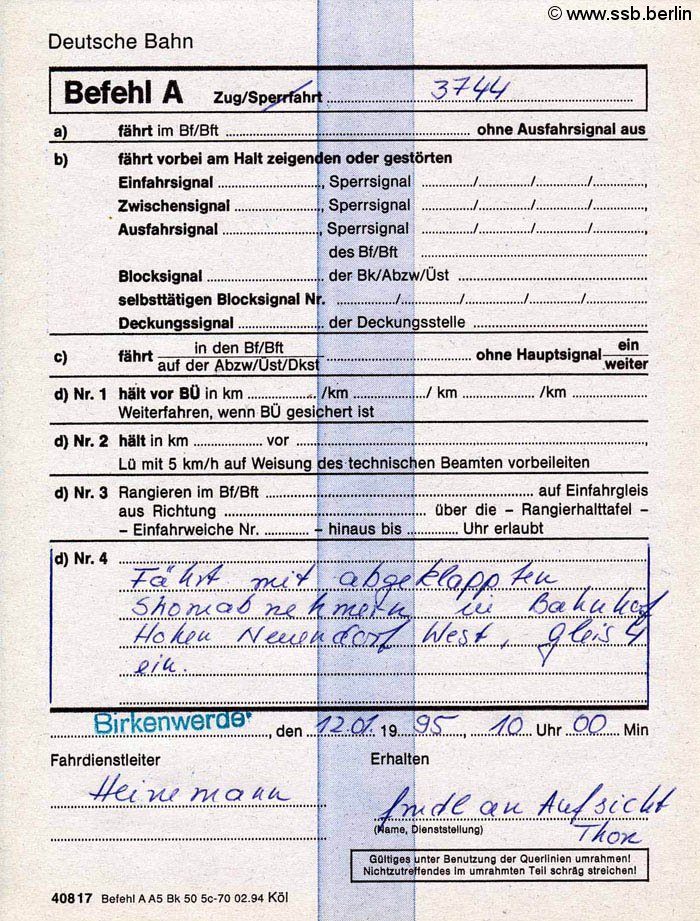 © www.ssb.berlin
Deutsche Bahn
Befehl A Zug/Sperrfahrt 3744
a) fährt im Bf/Bft ohne Ausfahrsignal aus
b) fährt vorbei am Halt zeigenden oder gestörten
Einfahrsignal , Sperrsignal / / / ,
Zwischensignal , Sperrsignal / / / ,
Ausfahrsignal , Sperrsignal / / / ,
des Bf/Bft
Blocksignal der Bk/Abzw/Üst
selbsttätigen Blocksignal Nr. / / / ,
Deckungssignal der Deckungsstelle
c) fährt in den Bf/Bft ohne Hauptsignal ein
auf der Abzw/Üst/Dkst weiter
d) Nr. 1 hält vor BÜ in km /km / km /km
Weiterfahren, wenn BÜ gesichert ist
d) Nr. 2 hält in km vor ,
Lü mit 5 km/h auf Weisung des technischen Beamten vorbeileiten
d) Nr. 3 Rangieren im Bf/Bft auf Einfahrgleis
aus Richtung über die - Rangierhalttafel -
- Einfahrweiche Nr. - hinaus bis Uhr erlaubt
d) Nr. 4
Fährt mit abgeklappten
Stromabnehmern in Bahnhof
Hohen Neuendorf West, Gleis 4
ein.
Birkenwerder , den 12.01. 19 95 , 10 Uhr 00 Min
Fahrdienstleiter Erhalten
Heinemann
fmdl an Aufsicht
(Name, Dienststellung) Thon
Gültiges unter Benutzung der Querlinien umrahmen!
Nichtzutreffendes im umrahmten Teil schräg streichen!
408 17 Befehl A A5 Bk 50 5c-70 02.94 Köl